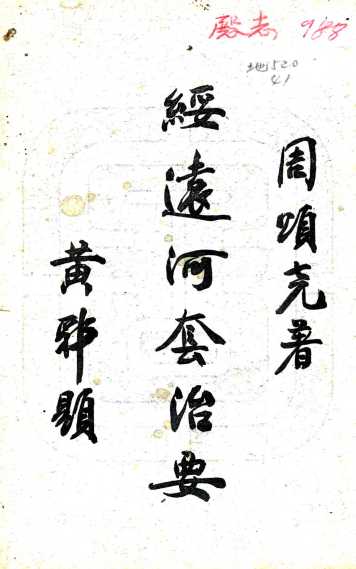 周頌尧著
綏遠河套治要
黃郛題
988
地520
41